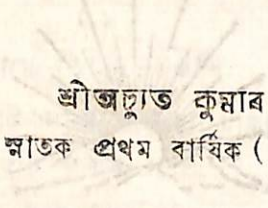 শ্ৰীঅচ্যুত কুমাৰ
স্নাতক প্ৰথম বাৰ্ষিক (